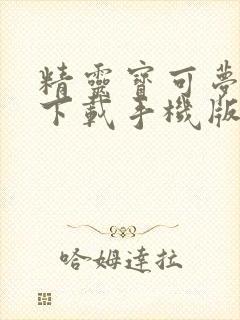 精靈寶可夢
下載手機版
哈姆達拉